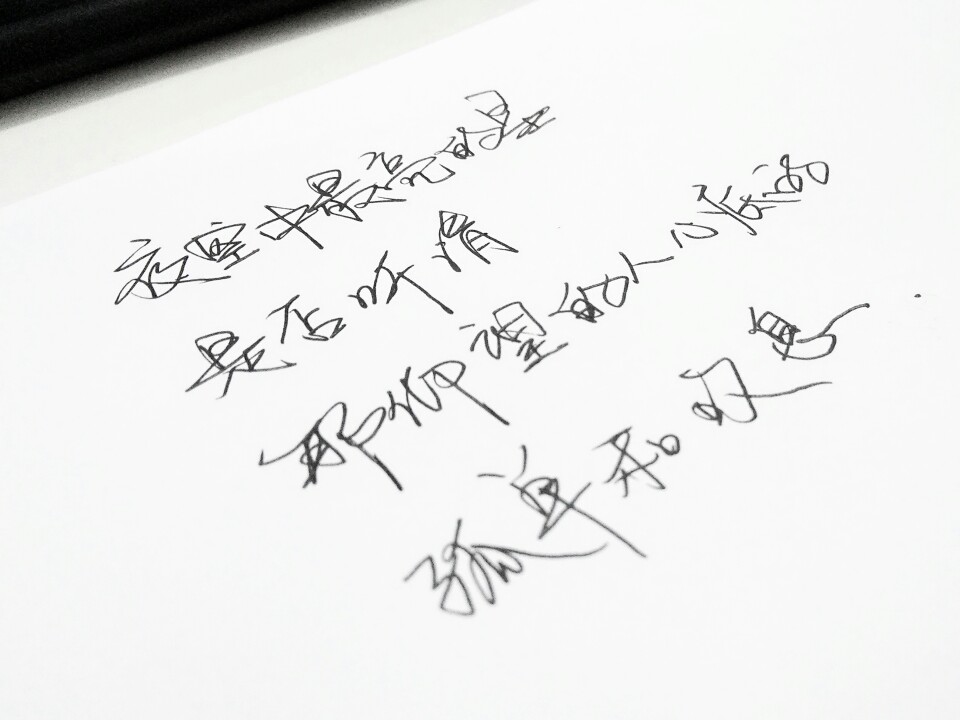 夜空中最亮的星
是否听清
那仰望的人心底的
孤单和叹息